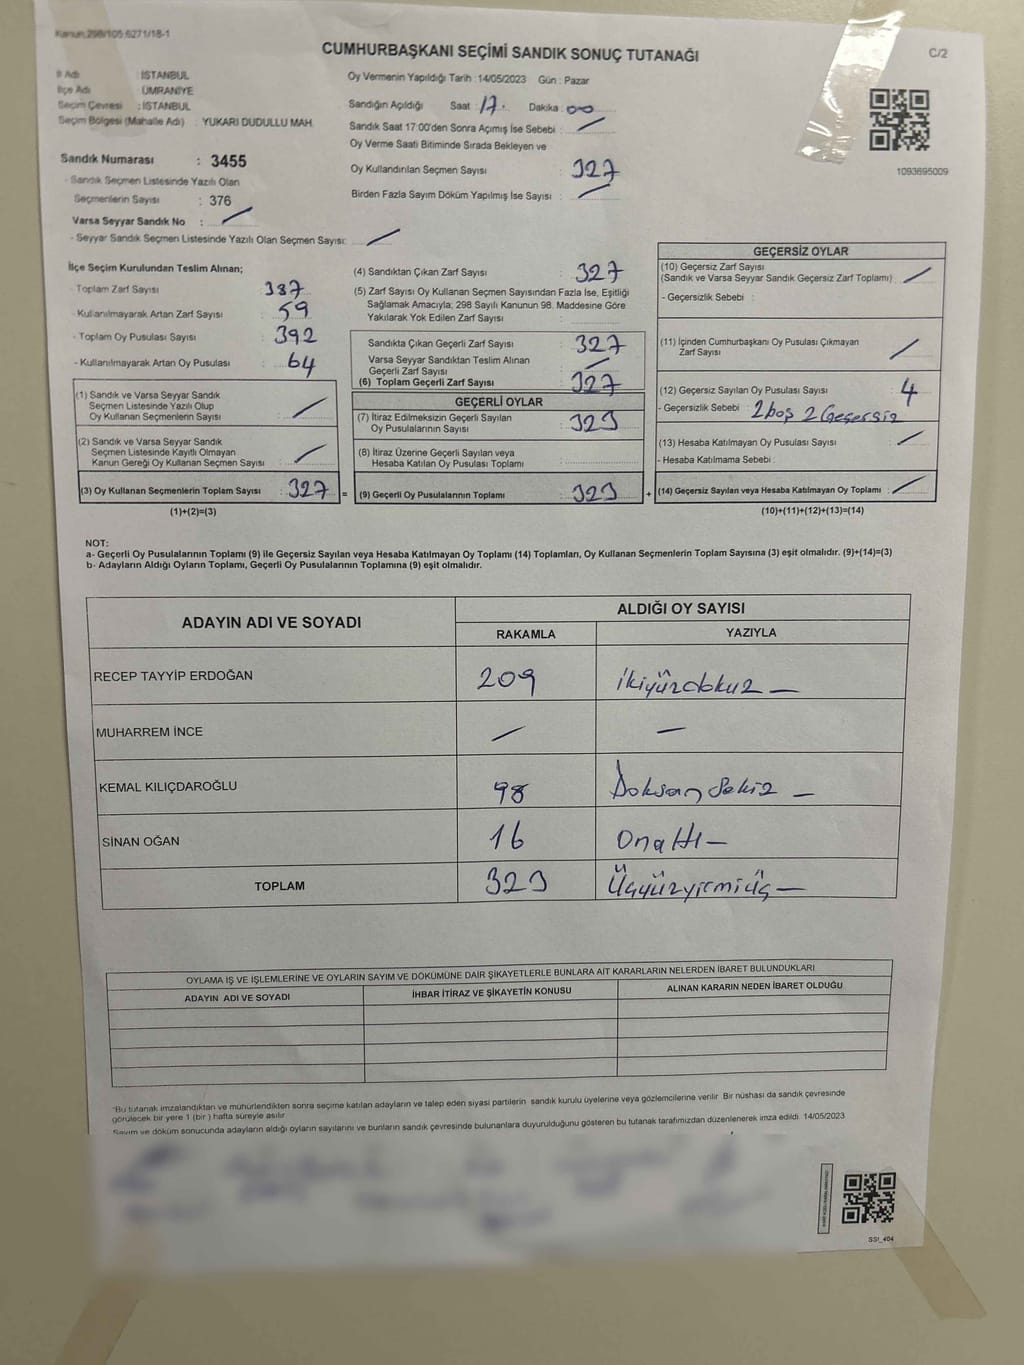 Kanun:298/105;6271/18-1
CUMHURBAŞKANI SEÇİMİ SANDIK SONUÇ TUTANAĞI
C/2
İl Adı : İSTANBUL
İlçe Adı : ÜMRANİYE
Seçim Çevresi : İSTANBUL
Seçim Bölgesi (Mahalle Adı) : YUKARI DUDULLU MAH.
Oy Vermenin Yapıldığı Tarih : 14/05/2023 Gün : Pazar
Sandığın Açıldığı Saat : 17. Dakika : 00
Sandık Saat 17:00'den Sonra Açımış İse Sebebi :
Oy Verme Saati Bitiminde Sırada Bekleyen ve
Oy Kullandırılan Seçmen Sayısı : 327
Birden Fazla Sayım Döküm Yapılmış İse Sayısı :
1093695009
Sandık Numarası : 3455
- Sandık Seçmen Listesinde Yazılı Olan
Seçmenlerin Sayısı : 376
Varsa Seyyar Sandık No :
- Seyyar Sandık Seçmen Listesinde Yazılı Olan Seçmen Sayısı:
İlçe Seçim Kurulundan Teslim Alınan;
- Toplam Zarf Sayısı : 387
- Kullanılmayarak Artan Zarf Sayısı : 59
- Toplam Oy Pusulası Sayısı : 392
- Kullanılmayarak Artan Oy Pusulası : 64
(1) Sandık ve Varsa Seyyar Sandık
Seçmen Listesinde Yazılı Olup
Oy Kullanan Seçmenlerin Sayısı :
(2) Sandık ve Varsa Seyyar Sandık
Seçmen Listesinde Kayıtlı Olmayan
Kanun Gereği Oy Kullanan Seçmen Sayısı :
(3) Oy Kullanan Seçmenlerin Toplam Sayısı : 327 =
(1)+(2)=(3)
(4) Sandıktan Çıkan Zarf Sayısı : 327
(5) Zarf Sayısı Oy Kullanan Seçmen Sayısından Fazla İse, Eşitliği
Sağlamak Amacıyla, 298 Sayılı Kanunun 98. Maddesine Göre
Yakılarak Yok Edilen Zarf Sayısı :
Sandıkta Çıkan Geçerli Zarf Sayısı : 327
Varsa Seyyar Sandıktan Teslim Alınan
Geçerli Zarf Sayısı :
(6) Toplam Geçerli Zarf Sayısı : 327
GEÇERLİ OYLAR
(7) İtiraz Edilmeksizin Geçerli Sayılan
Oy Pusulalarının Sayısı : 323
(8) İtiraz Üzerine Geçerli Sayılan veya
Hesaba Katılan Oy Pusulası Toplamı :
(9) Geçerli Oy Pusulalarının Toplamı : 323 +
GEÇERSİZ OYLAR
(10) Geçersiz Zarf Sayısı :
(Sandık ve Varsa Seyyar Sandık Geçersiz Zarf Toplamı)
- Geçersizlik Sebebi :
(11) İçinden Cumhurbaşkanı Oy Pusulası Çıkmayan
Zarf Sayısı :
(12) Geçersiz Sayılan Oy Pusulası Sayısı : 4
- Geçersizlik Sebebi : 2 boş 2 Geçersiz
(13) Hesaba Katılmayan Oy Pusulası Sayısı :
- Hesaba Katılmama Sebebi :
(14) Geçersiz Sayılan veya Hesaba Katılmayan Oy Toplamı :
(10)+(11)+(12)+(13)=(14)
NOT:
a- Geçerli Oy Pusulalarının Toplamı (9) ile Geçersiz Sayılan veya Hesaba Katılmayan Oy Toplamı (14) Toplamları, Oy Kullanan Seçmenlerin Toplam Sayısına (3) eşit olmalıdır. (9)+(14)=(3)
b- Adayların Aldığı Oyların Toplamı, Geçerli Oy Pusulalarının Toplamına (9) eşit olmalıdır.
ADAYIN ADI VE SOYADI
ALDIĞI OY SAYISI
RAKAMLA YAZIYLA
RECEP TAYYİP ERDOĞAN 209 ikiyüzdokuz —
MUHARREM İNCE — —
KEMAL KILIÇDAROĞLU 98 Doksan Sekiz —
SİNAN OĞAN 16 Onaltı —
TOPLAM 323 Üçyüzyirmiüç —
OYLAMA İŞ VE İŞLEMLERİNE VE OYLARIN SAYIM VE DÖKÜMÜNE DAİR ŞİKAYETLERLE BUNLARA AİT KARARLARIN NELERDEN İBARET BULUNDUKLARI
ADAYIN ADI VE SOYADI İHBAR İTİRAZ VE ŞİKAYETİN KONUSU ALINAN KARARIN NEDEN İBARET OLDUĞU
*Bu tutanak imzalandıktan ve mühürlendikten sonra seçime katılan adayların ve talep eden siyasi partilerin sandık kurulu üyelerine veya gözlemcilerine verilir. Bir nüshası da sandık çevresinde
görülecek bir yere 1 (bir) hafta süreyle asılır
Sayım ve döküm sonucunda adayların aldığı oyların sayılarını ve bunların sandık çevresinde bulunanlara duyurulduğunu gösteren bu tutanak tarafımızdan düzenlenerek imza edildi. 14/05/2023
SSI_404